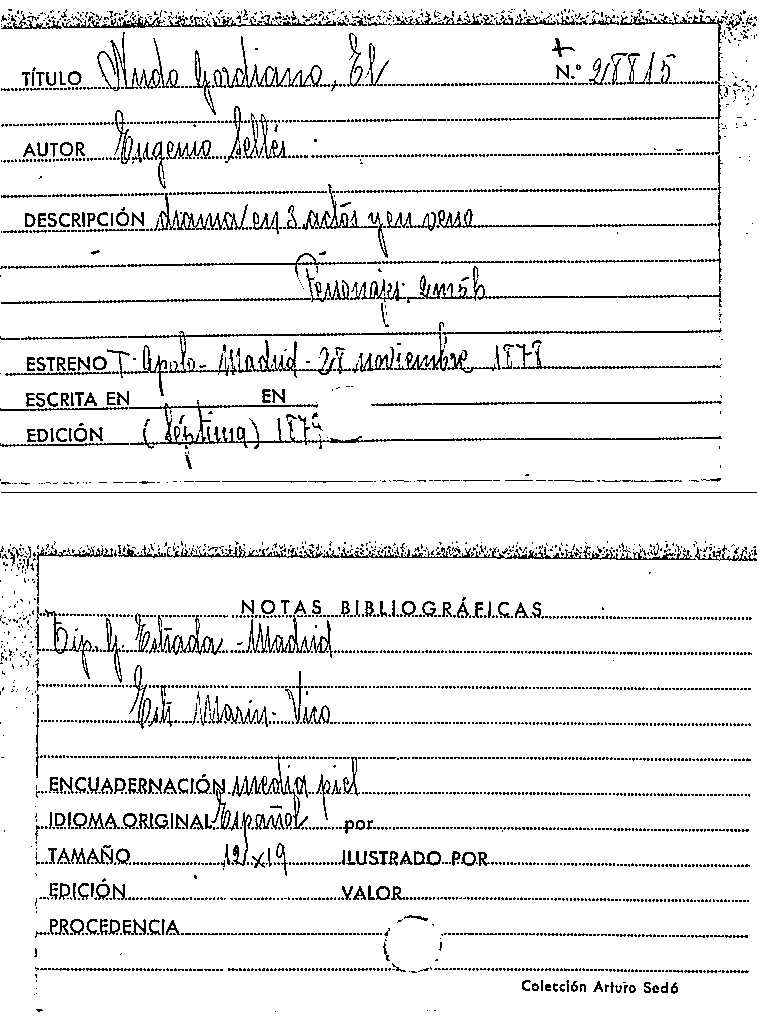 TÍTULO Nudo Gordiano, El
+
N.º 28815
AUTOR Eugenio Sellés
DESCRIPCIÓN drama en 3 actos y en verso
Personajes: 2m5h
ESTRENO T. Apolo - Madrid - 28 noviembre 1878
ESCRITA EN EN
EDICIÓN (Séptima) 1879
NOTAS BIBLIOGRÁFICAS
Tip. G. Estrada - Madrid
Est. Marín - Vico
ENCUADERNACIÓN media piel
IDIOMA ORIGINAL Español por
TAMAÑO 12x19 ILUSTRADO POR
EDICIÓN VALOR
PROCEDENCIA
Colección Arturo Sedó